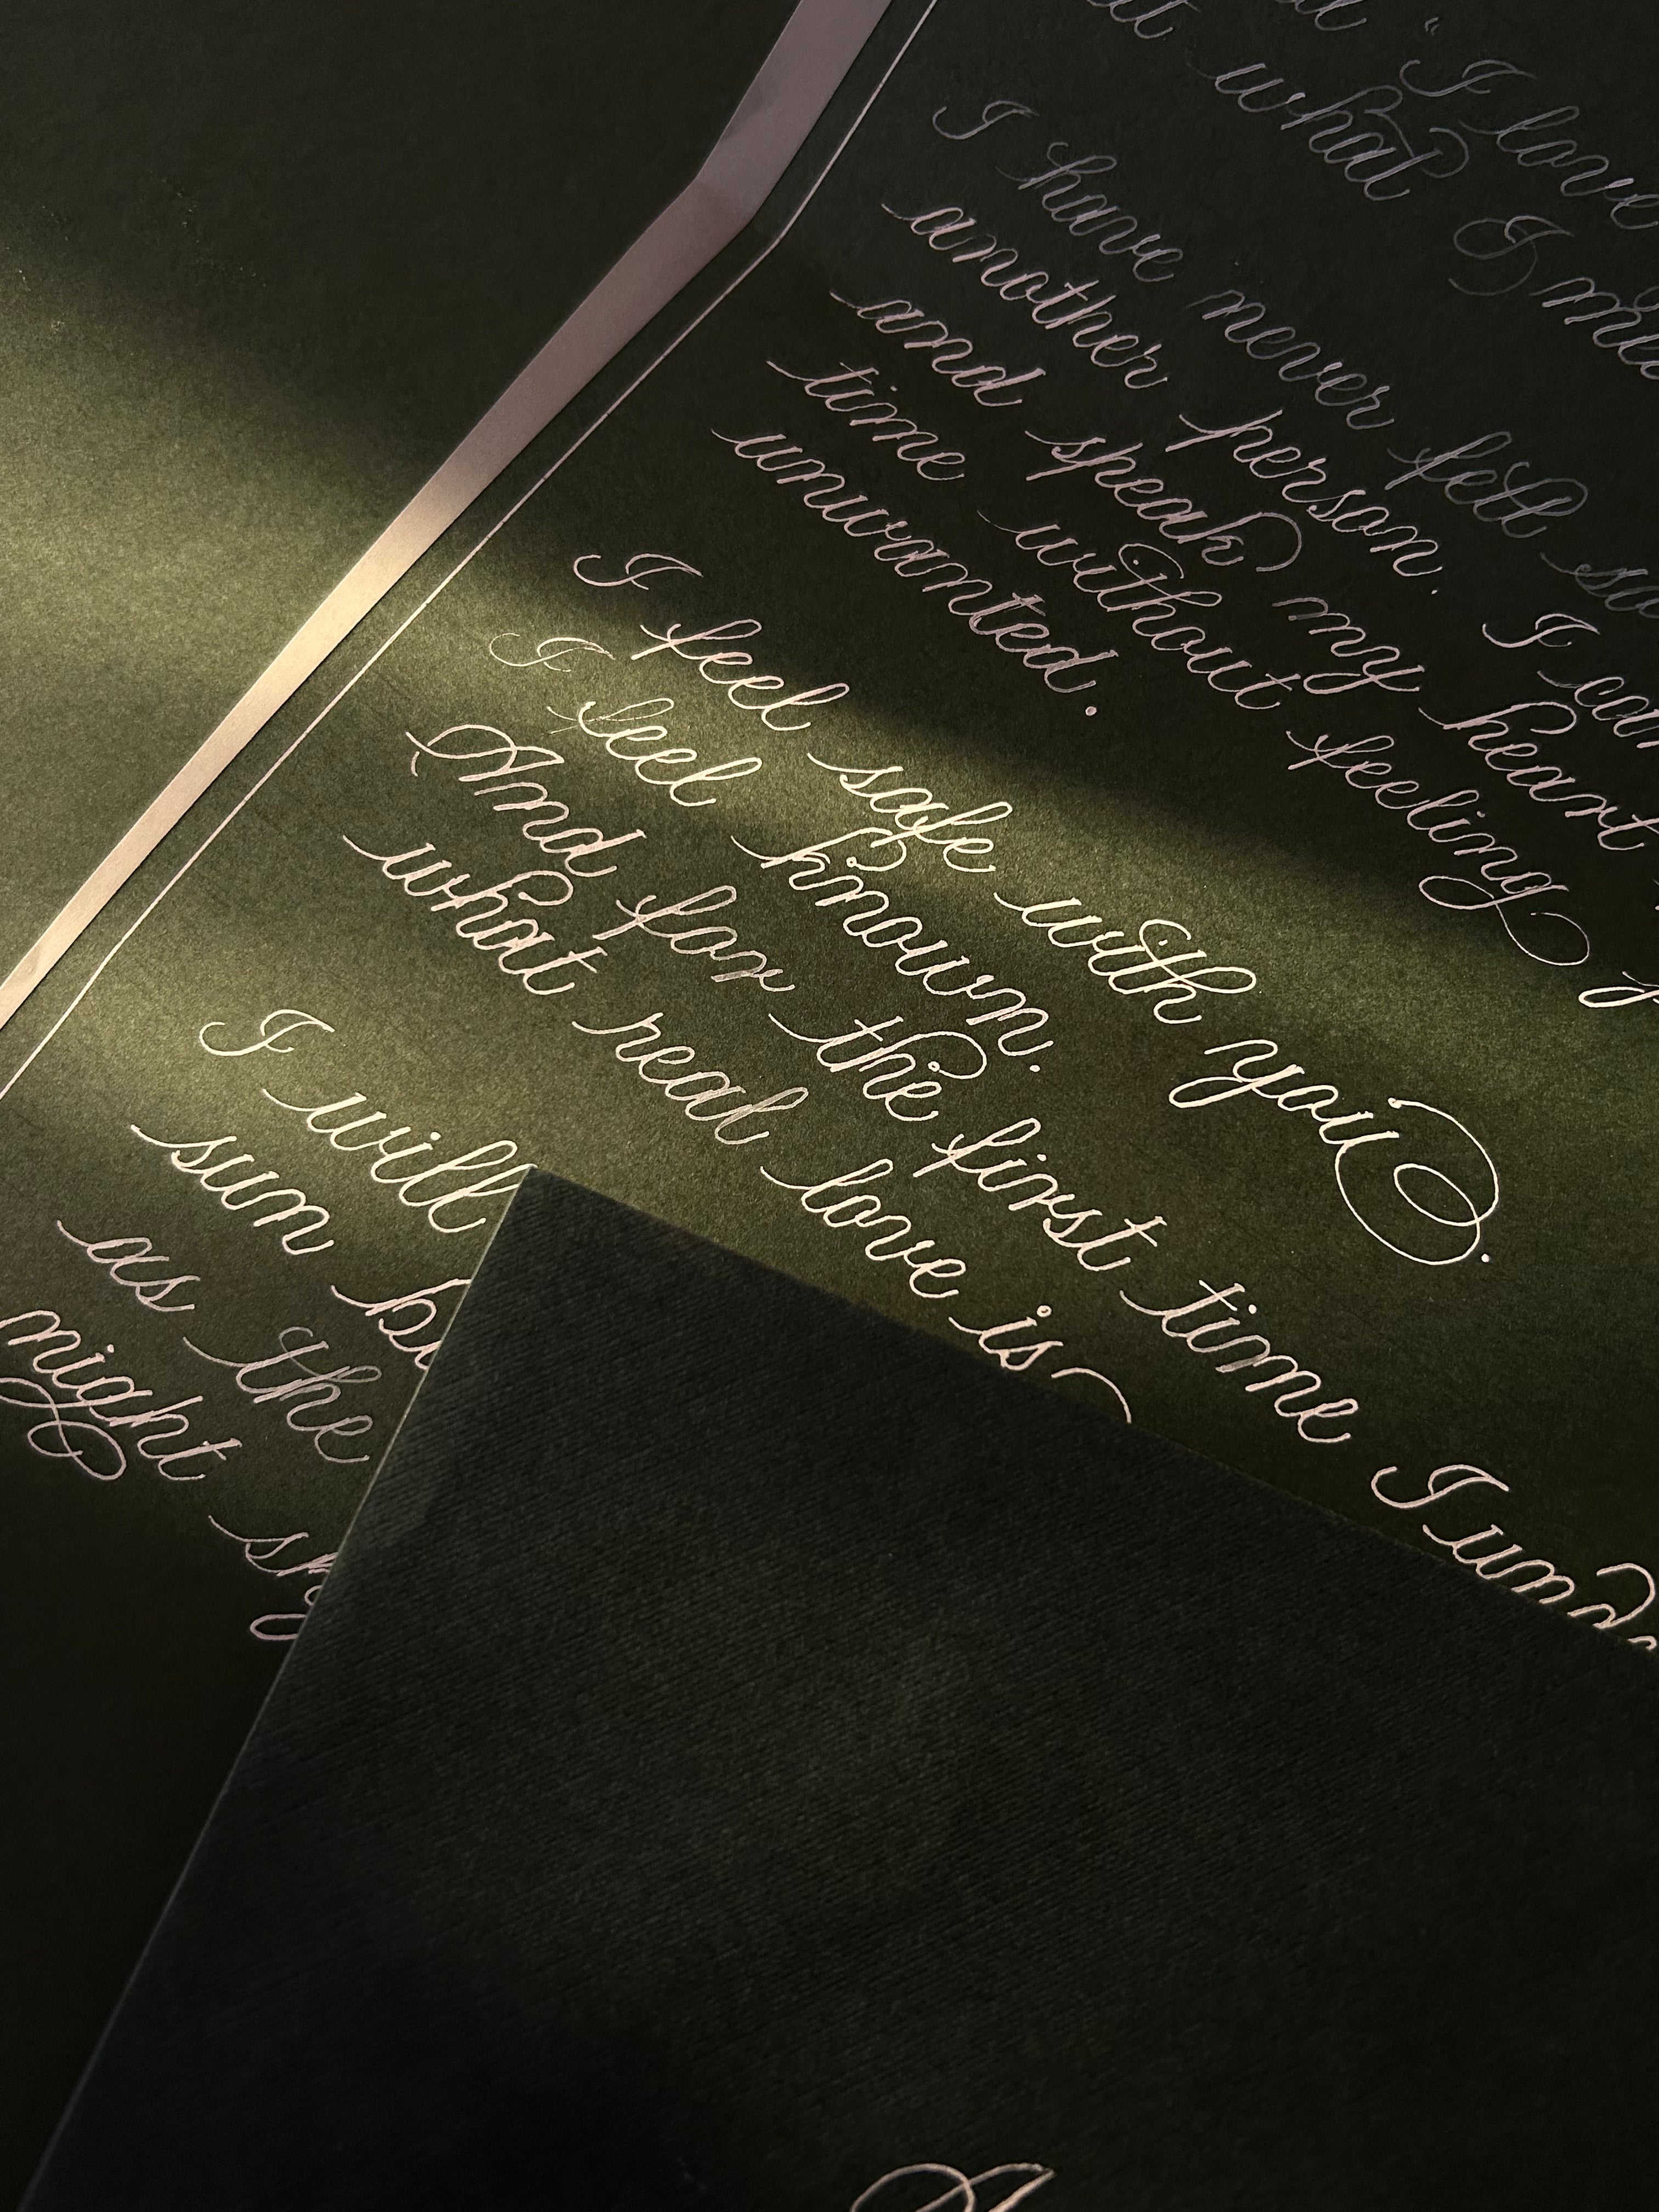 "I love
what I
I have never felt
another person. I
and speak my heart
time without feeling
unwanted.
I feel safe with you.
I feel known.
And for the first time I und
what real love is
I will
sun b
as the
night sky